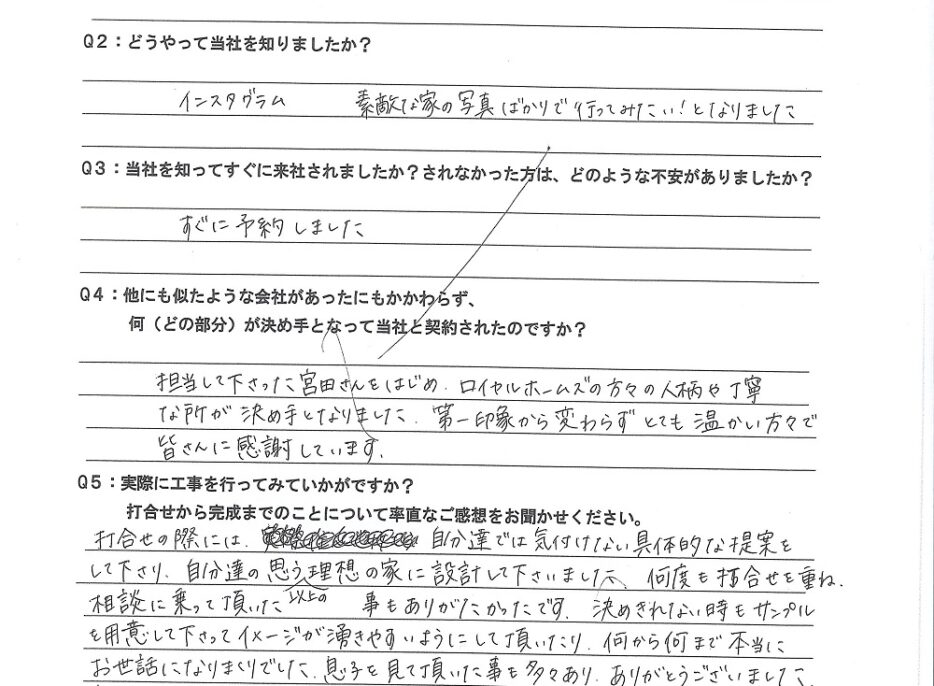 Q2：どうやって当社を知りましたか？
インスタグラム　素敵な家の写真ばかりで行ってみたい！となりました
Q3：当社を知ってすぐに来社されましたか？されなかった方は、どのような不安がありましたか？
すぐに予約しました
Q4：他にも似たような会社があったにもかかわらず、
何（どの部分）が決め手となって当社と契約されたのですか？
担当して下さった宮田さんをはじめ、ロイヤルホームズの方々の人柄や丁寧
な所が決め手となりました。第一印象から変わらずとても温かい方々で
皆さんに感謝しています。
Q5：実際に工事を行ってみていかがですか？
打合せから完成までのことについて率直なご感想をお聞かせください。
打合せの際には、自分達では気付けない具体的な提案を
して下さり、自分達の思う理想以上の家に設計して下さいました。何度も打合せを重ね、
相談に乗って頂いた事もありがたかったです。決めきれない時もサンプル
を用意して下さってイメージが湧きやすいようにして頂いたり、何から何まで本当に
お世話になりまくりでした。息子を見て頂いた事も多々あり、ありがとうございました。